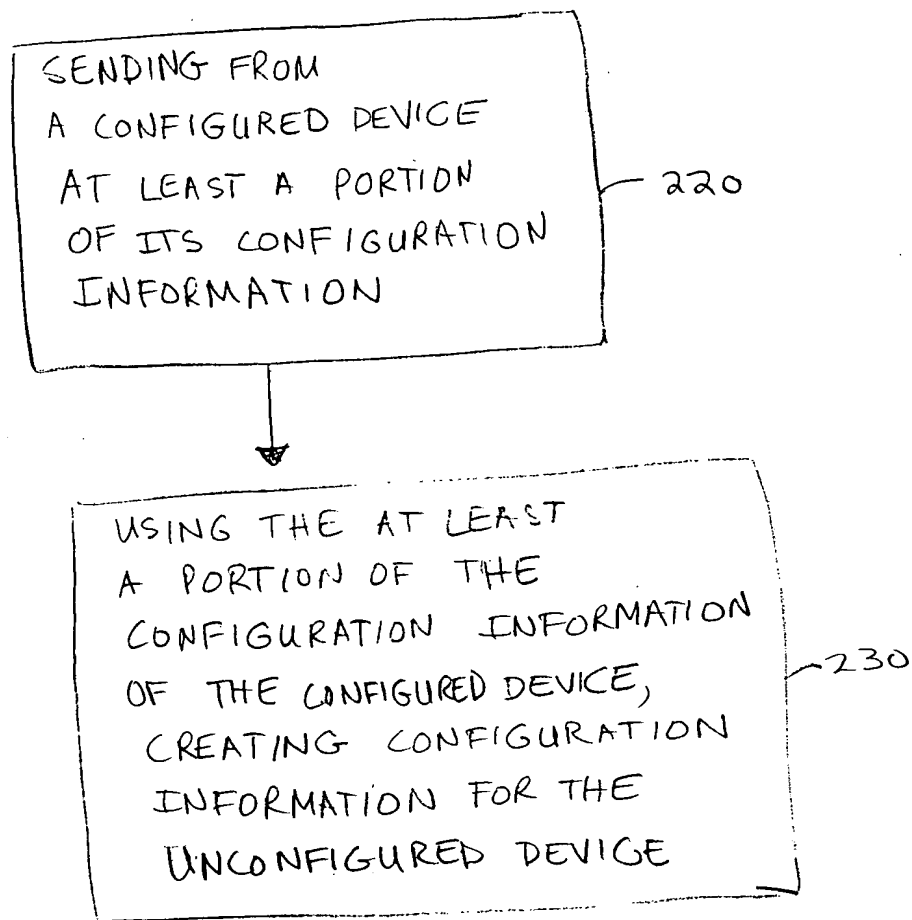 SENDING FROM
A CONFIGURED DEVICE
AT LEAST A PORTION
OF ITS CONFIGURATION
INFORMATION
220
USING THE AT LEAST
A PORTION OF THE
CONFIGURATION INFORMATION
OF THE CONFIGURED DEVICE,
CREATING CONFIGURATION
INFORMATION FOR THE
UNCONFIGURED DEVICE
230